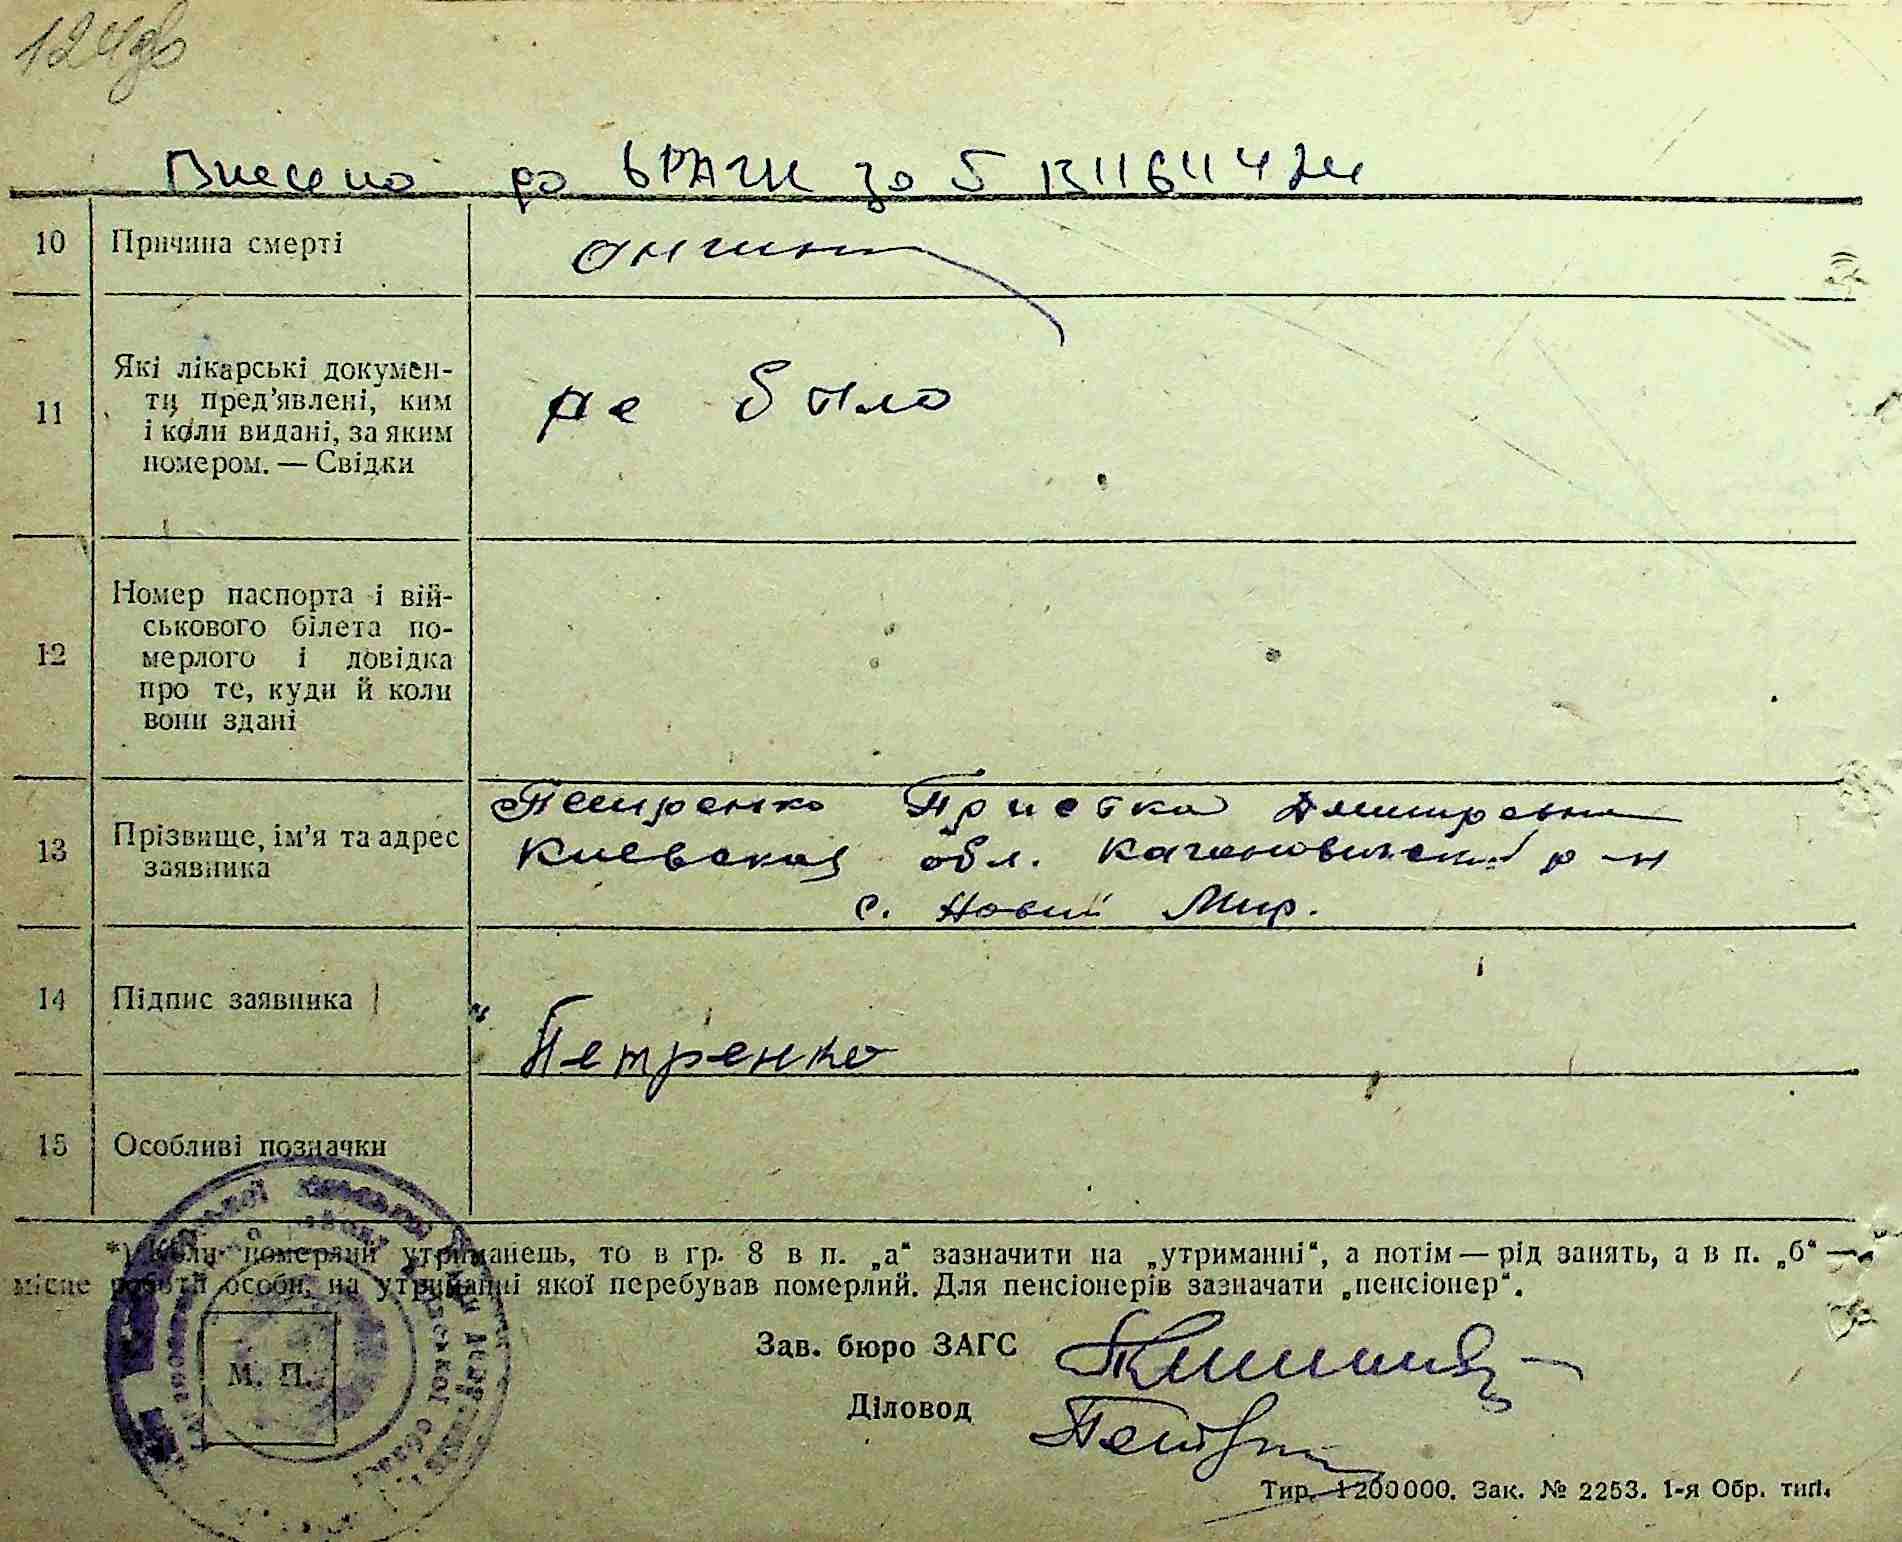 Внесено до ДРАЦС за
10 Причина смерті ангина
11 Які лікарські докумен-
ти пред'явлені, ким
і коли видані, за яким
номером. — Свідки
не было
12 Номер паспорта і вій-
ськового білета по-
мерлого і довідка
про те, куди й коли
вони здані
13 Прізвище, ім'я та адрес
заявника
Петренко Приська Дмитровна
Киевская обл. Кагановический р-н
с. Новый Мир.
14 Підпис заявника
Петренко
15 Особливі позначки
*) Коли померлий утриманець, то в гр. 8 в п. „а“ зазначити на „утриманні“, а потім — рід занять, а в п. „б“ —
місце роботи особи, на утриманні якої перебував померлий. Для пенсіонерів зазначати „пенсіонер“.
Зав. бюро ЗАГС
М. П.
Діловод
Тир. 1200000. Зак. № 2253. 1-я Обр. тип.